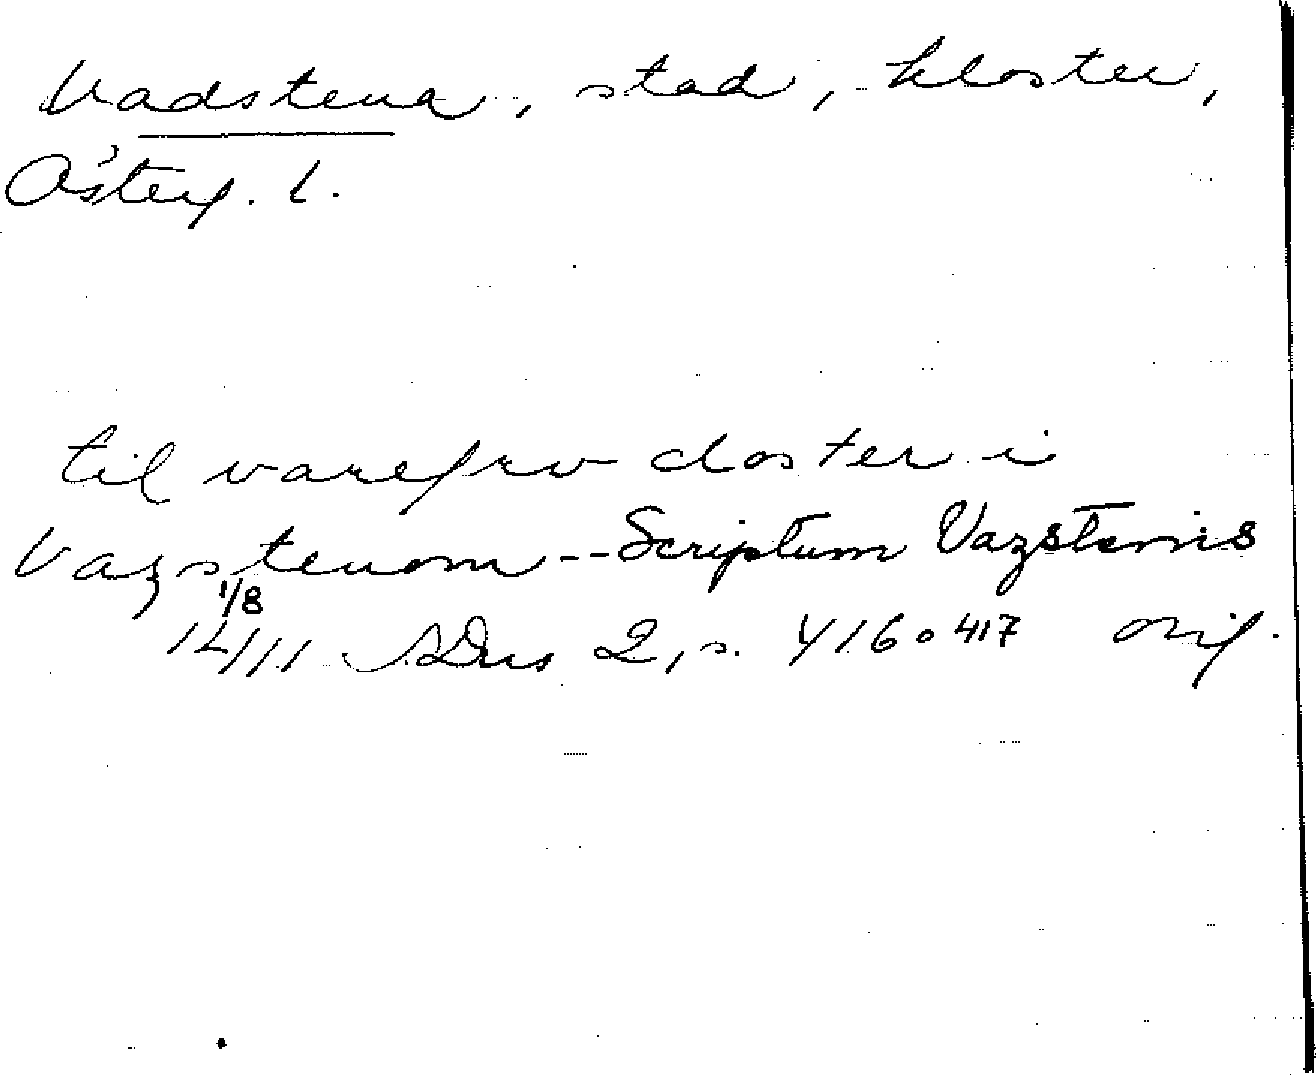 Vadstena, stad, kloster,
Österg. l.
til varefrw closter i
Vazstenom -- Scriptum Vazstenis
1/8
1411 SDns 2, s. 416 o 417 orig.